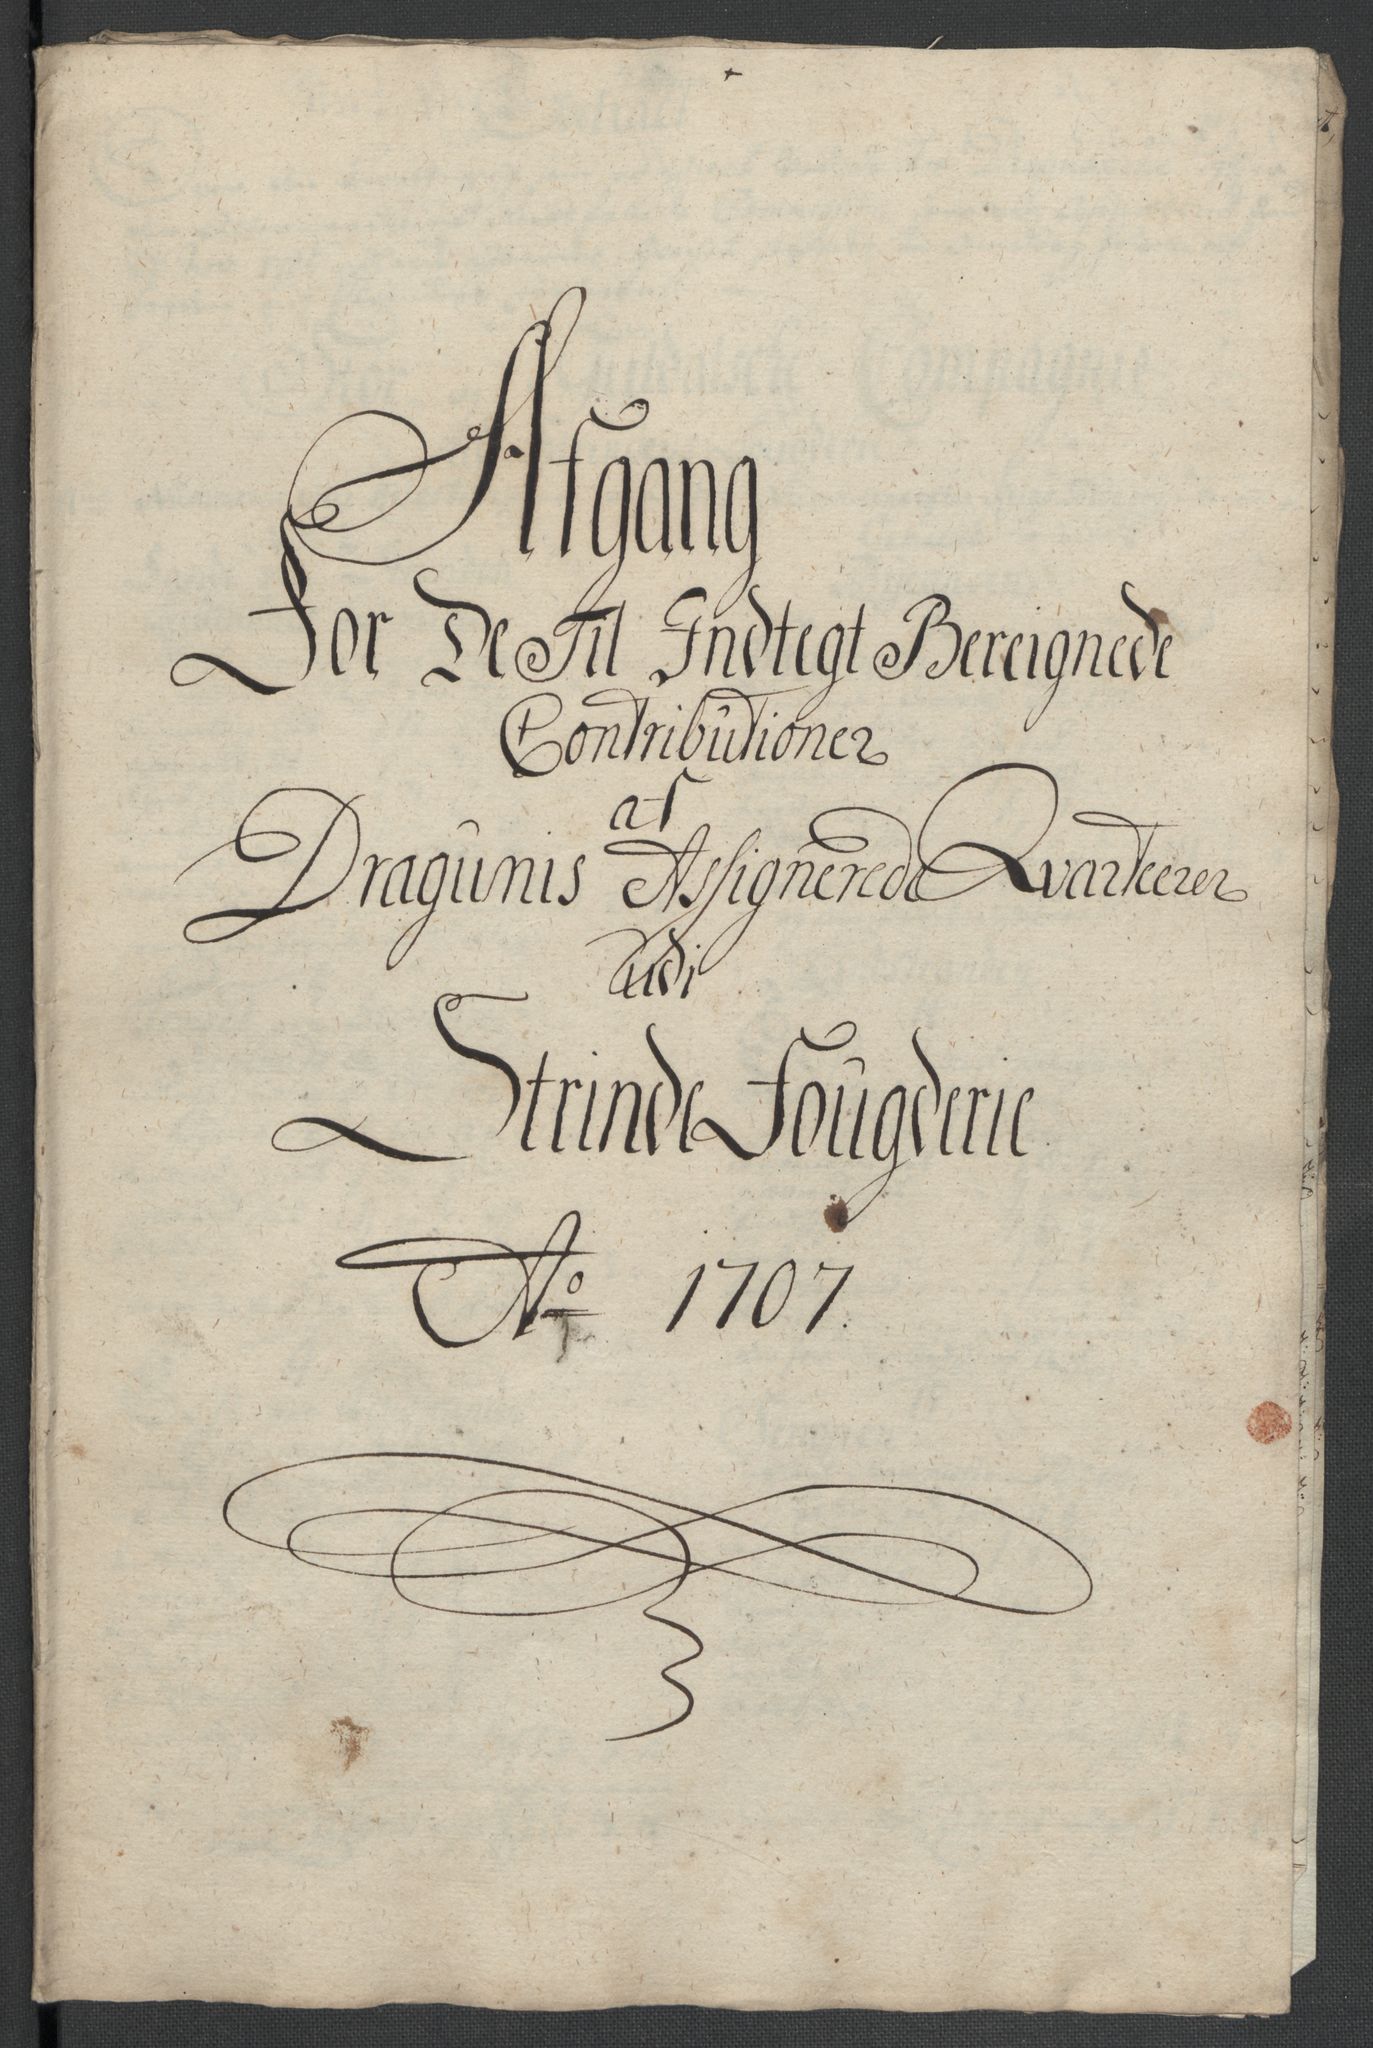 Afgang
For De Til Indtegt Bereignede
Contributioner
af
Dragunis Assignerede Qvarteerer
udi
Strinde Fougderie
Ao 1707.